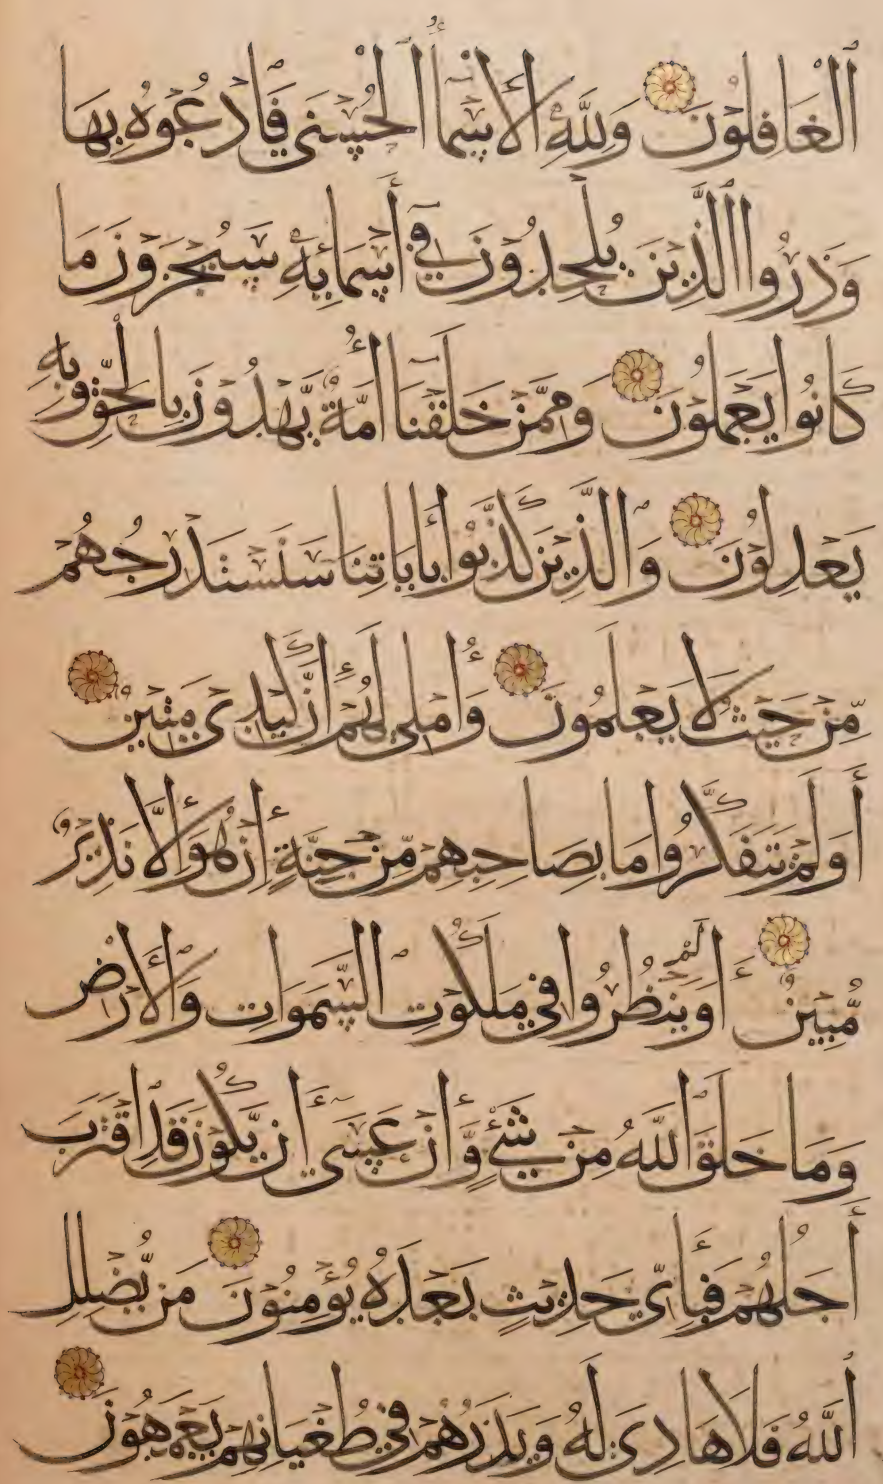 ٱلْغَافِلُوْنَ وَلِلّٰهِ الْأَسْمَآءُ الْحُسْنٰى فَادْعُوْهُ بِهَا
وَذَرُوا الَّذِيْنَ يُلْحِدُوْنَ فِىْٓ أَسْمَآئِهٖ سَيُجْزَوْنَ مَا
كَانُوْا يَعْمَلُوْنَ وَمِمَّنْ خَلَقْنَآ أُمَّةٌ يَّهْدُوْنَ بِالْحَقِّ وَبِهٖ
يَعْدِلُوْنَ وَالَّذِيْنَ كَذَّبُوْا بِاٰيَاتِنَا سَنَسْتَدْرِجُهُمْ
مِّنْ حَيْثُ لَا يَعْلَمُوْنَ وَأُمْلِىْ لَهُمْ إِنَّ كَيْدِىْ مَتِيْنٌ
أَوَلَمْ يَتَفَكَّرُوْا مَا بِصَاحِبِهِمْ مِّنْ جِنَّةٍ إِنْ هُوَ إِلَّا نَذِيْرٌ
مُّبِيْنٌ أَوَلَمْ يَنْظُرُوْا فِىْ مَلَكُوْتِ السَّمٰوَاتِ وَالْأَرْضِ
وَمَا خَلَقَ اللّٰهُ مِنْ شَىْءٍ وَّأَنْ عَسٰىٓ أَنْ يَّكُوْنَ قَدِ اقْتَرَبَ
أَجَلُهُمْ فَبِأَىِّ حَدِيْثٍ بَعْدَهُ يُؤْمِنُوْنَ مَنْ يُّضْلِلِ
ٱللّٰهُ فَلَا هَادِىَ لَهُ وَيَذَرُهُمْ فِىْ طُغْيَانِهِمْ يَعْمَهُوْنَ